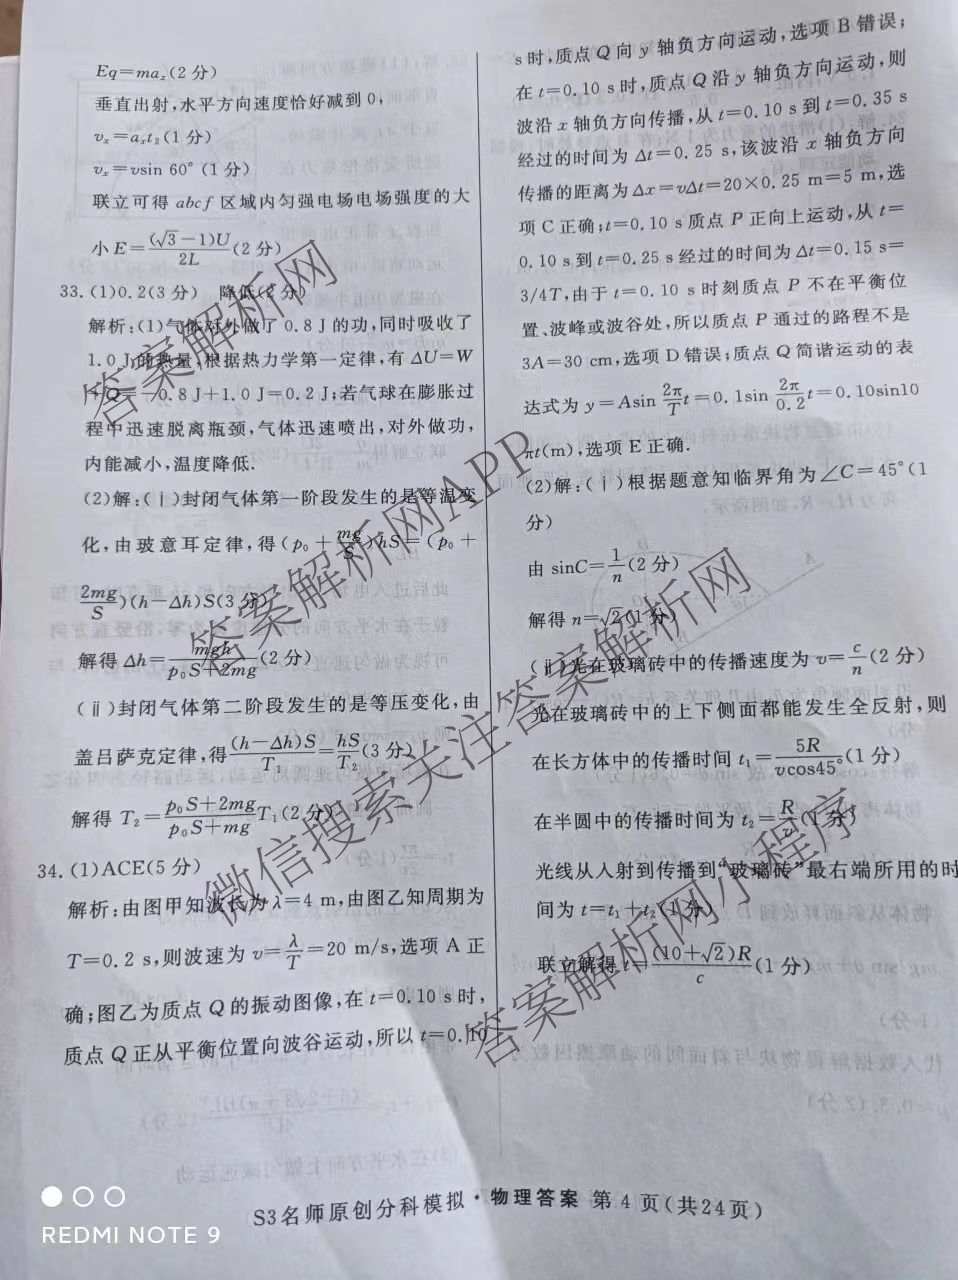 Eq=maₓ(2分)
垂直出射,水平方向速度恰好减到0,
vₓ=aₓt₂(1分)
vₓ=vsin 60°(1分)
联立可得abcf区域内匀强电场电场强度的大
小E=(√3-1)U/2L(2分)
33.(1)0.2(3分) 降低(2分)
解析:(1)气体对外做了0.8 J的功,同时吸收了
1.0 J的热量,根据热力学第一定律,有ΔU=W
+Q=-0.8 J+1.0 J=0.2 J;若气球在膨胀过
程中迅速脱离瓶颈,气体迅速喷出,对外做功,
内能减小,温度降低.
(2)解:(ⅰ)封闭气体第一阶段发生的是等温变
化,由玻意耳定律,得(p₀+mg/S)hS=(p₀+
2mg/S)(h-Δh)S(3分)
解得Δh=mgh/(p₀S+2mg)(2分)
(ⅱ)封闭气体第二阶段发生的是等压变化,由
盖吕萨克定律,得(h-Δh)S/T₁=hS/T₂(3分)
解得T₂=(p₀S+2mg)/(p₀S+mg)T₁(2分)
34.(1)ACE(5分)
解析:由图甲知波长为λ=4 m,由图乙知周期为
T=0.2 s,则波速为v=λ/T=20 m/s,选项A正
确;图乙为质点Q的振动图像,在t=0.10 s时,
质点Q正从平衡位置向波谷运动,所以t=0.10
s时,质点Q向y轴负方向运动,选项B错误;
在t=0.10 s时,质点Q沿y轴负方向运动,则
波沿x轴负方向传播,从t=0.10 s到t=0.35 s
经过的时间为Δt=0.25 s,该波沿x轴负方向
传播的距离为Δx=vΔt=20×0.25 m=5 m,选
项C正确;t=0.10 s质点P正向上运动,从t=
0.10 s到t=0.25 s经过的时间为Δt=0.15 s=
3/4T,由于t=0.10 s时刻质点P不在平衡位
置、波峰或波谷处,所以质点P通过的路程不是
3A=30 cm,选项D错误;质点Q简谐运动的表
达式为y=Asin 2π/T t=0.1sin 2π/0.2 t=0.10sin10
πt(m),选项E正确.
(2)解:(ⅰ)根据题意知临界角为∠C=45°(1
分)
由sinC=1/n(2分)
解得n=√2(1分)
(ⅱ)光在玻璃砖中的传播速度为v=c/n(2分)
光在玻璃砖中的上下侧面都能发生全反射,则
在长方体中的传播时间t₁=5R/vcos45°(1分)
在半圆中的传播时间为t₂=R/v(1分)
光线从入射到传播到“玻璃砖”最右端所用的时
间为t=t₁+t₂(1分)
联立解得t=(10+√2)R/c(1分)
S3名师原创分科模拟·物理答案 第4页(共24页)
答案解析网
答案解析网APP
微信搜索关注答案解析网
答案解析网小程序
REDMI NOTE 9